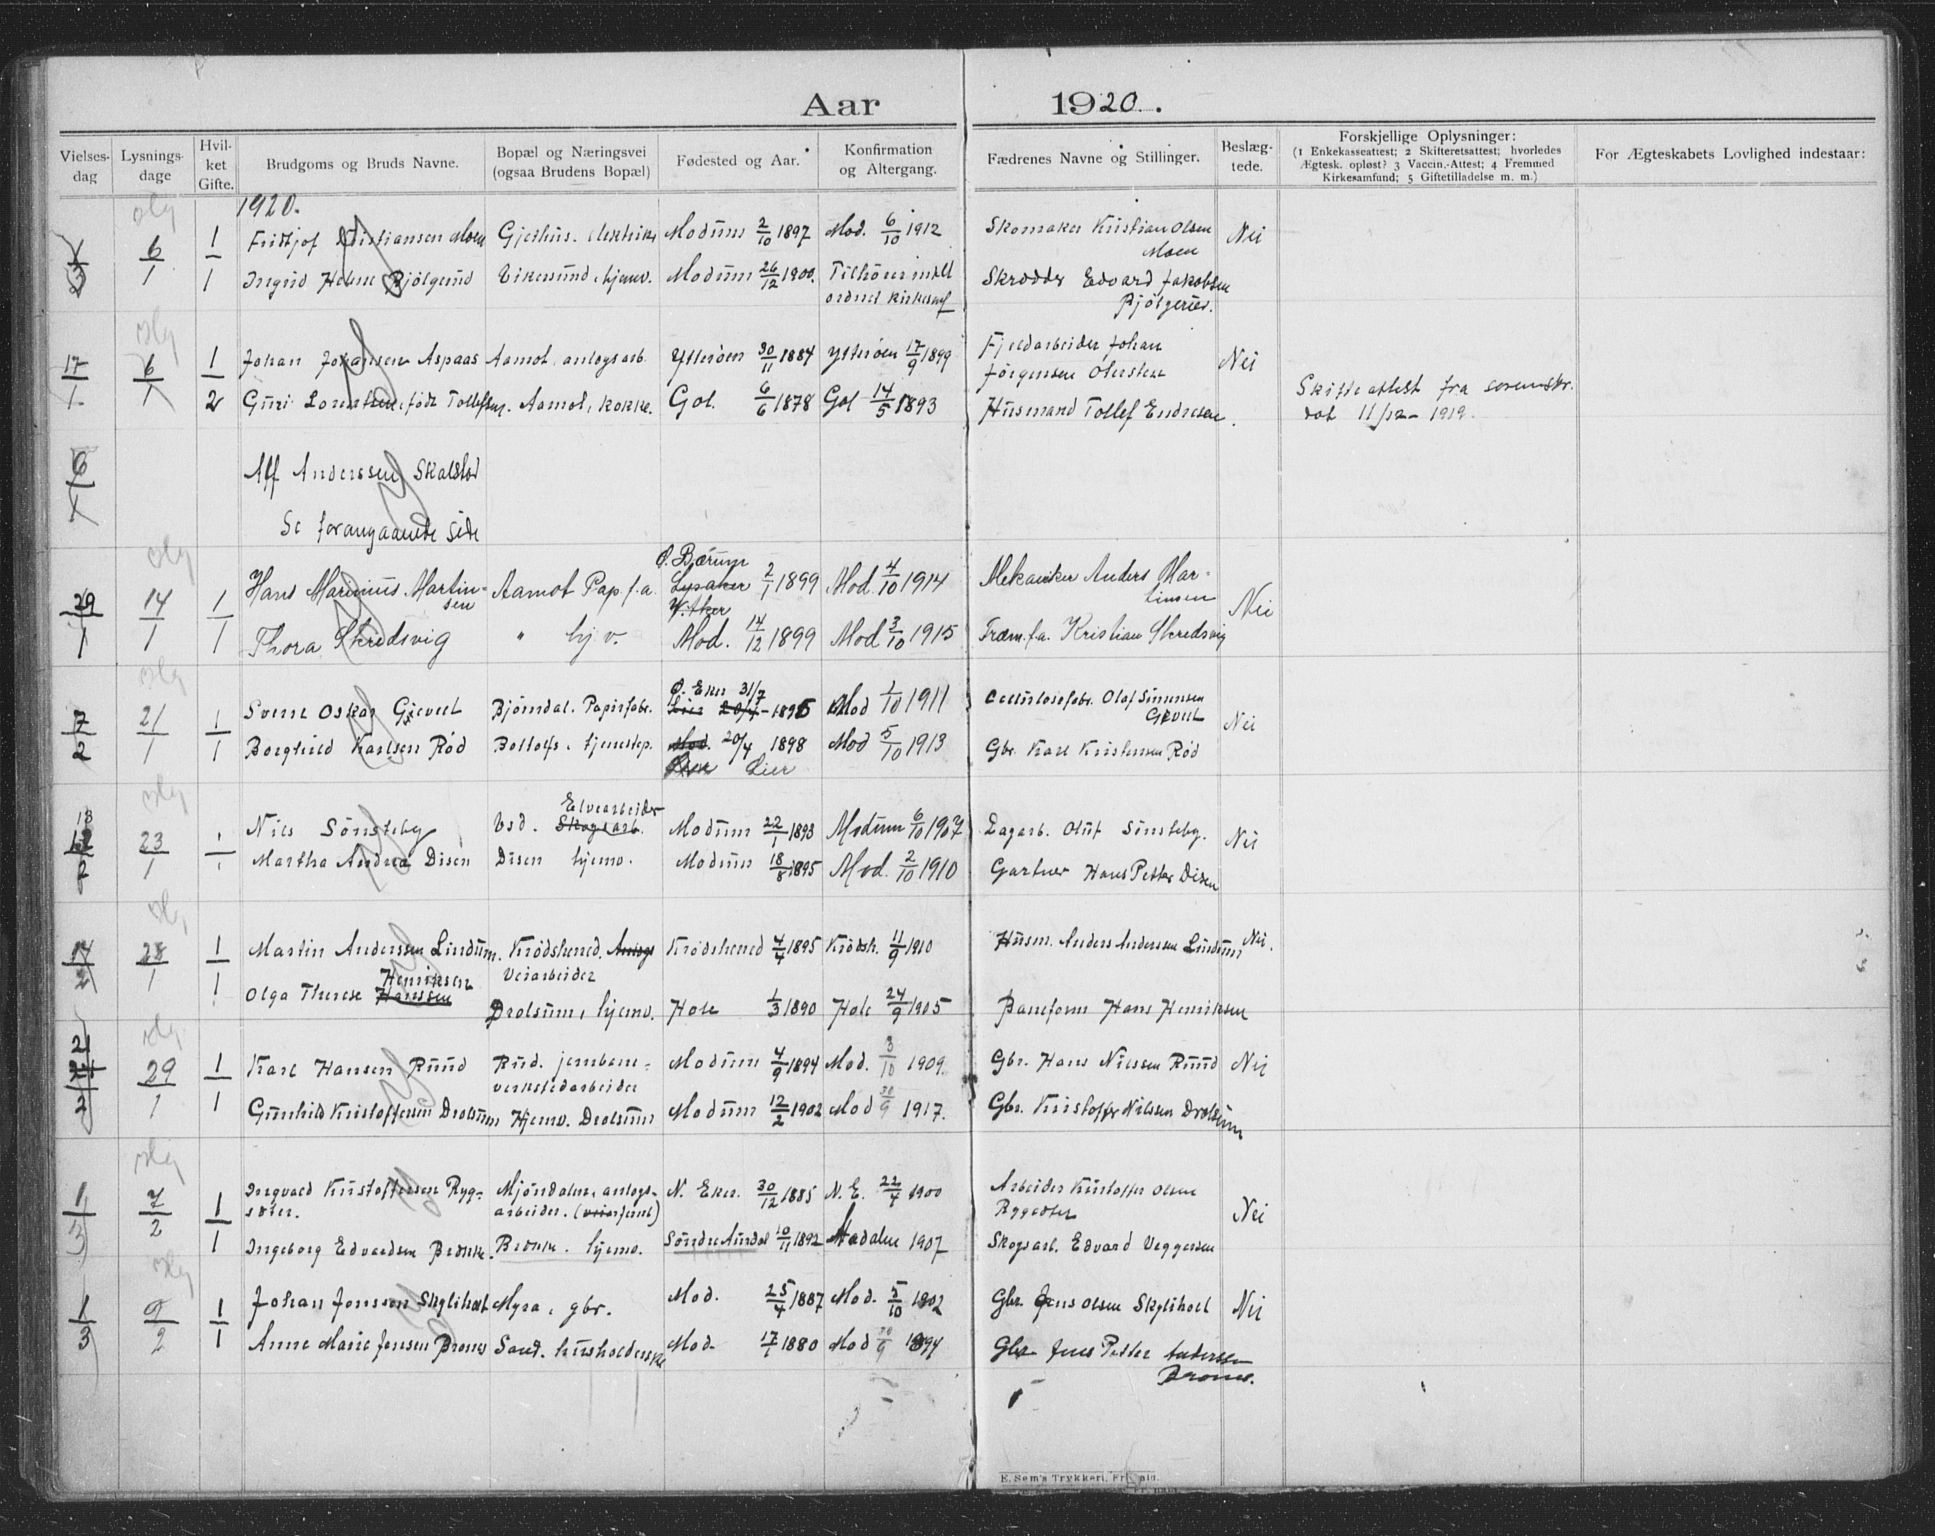 Aar 1920.
Vielses-dag
Lysnings-dage
Hvil-ket Gifte.
Brudgoms og Bruds Navne.
Bopæl og Næringsvei (ogsaa Brudens Bopæl)
Fødested og Aar.
Konfirmation og Altergang.
Fædrenes Navne og Stillinger.
Beslæg-tede.
Forskjellige Oplysninger:
(1 Enkekasseattest; 2 Skifteretsattest; hvorledes
Ægtesk. opløst? 3 Vaccin.-Attest; 4 Fremmed
Kirkesamfund; 5 Giftetilladelse m. m.)
For Ægteskabets Lovlighed indestaar:
1920.
6/1 1 Fridtjof Kristiansen Moen Gjethus. Modum 2/10 1897 Mod. 6/10 1912 Skomaker Kristian Olsen Moen Nei
1 Ingrid Helene Bjölgerud Vikersund, hjemv. Modum 26/12 1900. Skrædder Edvard Jakobsen
17/1 6/1 1 Johan Johansen Aspaas Aamot, anlegsarb. Ytterøen 30/11 1884 Ytterøen 17/9 1899 Fjeldarbeider Johan
Jörgensen Nei
2 Guri Lorentsen, født Tollefsen. Aamot, kokke. Gol. 6/6 1878 Gol 14/5 1893 Husmand Tollef Endresen. Skifteattest fra sorenskr.
dat 11/12 - 1919.
6/1 Alf Anderssen Skalstad
Se forangaaende side
29/1 14/1 1 Hans Marinius Martin-sen Aamot Pap. f. a. Ø. Bærum Lysaker V. Aker 2/1 1899 Mod. 4/10 1914 Mekaniker Anders Mar-tinsen Nei
1 Thora Skredsvig " hj. v. Mod. 14/12 1899 Mod 3/10 1915 Træm. f. a. Kristian Skredsvig
7/2 21/1 1 Svene Oskar Gjevelt Björndal. Papirfabr. Ø. Eker 31/7 Lier 1895 Mod 1/10 1911 Cellulosefabr. Olaf Simensen Nei
1 Borghild Karlsen Rød Bottolfs, tjenestep. Mod. 20/4 1898 Lier Mod 5/10 1913 Gbr. Karl Kristensen Rød
13 23/1 1 Nils Sönsteby Elvearbeider Skogsarb. Modum 22/1 1893 Modum 6/10 1907 Dagarb. Oluf Sönsteby. Nei
1 Martha Andrea Disen Disen hjemv. Modum 18/8 1895 Mod. 2/10 1910 Gartner Hans Petter Disen
14/2 28/1 1 Martin Anderssen Lindum. Krødshered, Veiarbeider Krødshered 4/4 1895 Krødsh. 11/9 1910 Husm. Anders Anderssen Lindum Nei.
1 Olga Therese Hanssen Henriksen Drolsum, hjemv. Hole 1/3 1890 Hole 24/9 1905 Baneform Hans Henriksen
21/2 29/1 1 Karl Hansen Ruud Rud. jernbane-verkstedarbeider Modum 4/9 1894 Mod. 3/10 1909. Gbr. Hans Nilssen Ruud Nei
1 Gunhild Kristoffersen Drolsum Hjemv. Drolsum Modum 12/2 1902 Mod 30/9 1917. Gbr. Kristoffer Nilssen Drolsum
1/3 7/2 1 Ingvald Kristoffersen Ryg-sæter. Mjöndalen, anlegs-arbeider. N. Eker. 30/12 1885 N. E. 22/4 1900 Arbeider Kristoffer Olsen
Nei
1 Ingeborg Edvardsen hjemv. Søndre Aurdal 10/11 1892 1907 Skogsarb. Edvard Veggersen
1/3 9/2 1 Johan Jonssen Skylihalt Myra, gbr. Mod. 25/4 1887 Mod. 5/10 1902 Gbr. Jens Olsen Nei
1 Anne Marie Jensen Sand. husholderske Mod. 17/1 1880 Mod 30/9 1894 Gbr. Jens Petter Anderssen
E. Sem's Trykkeri, Fr.hald.